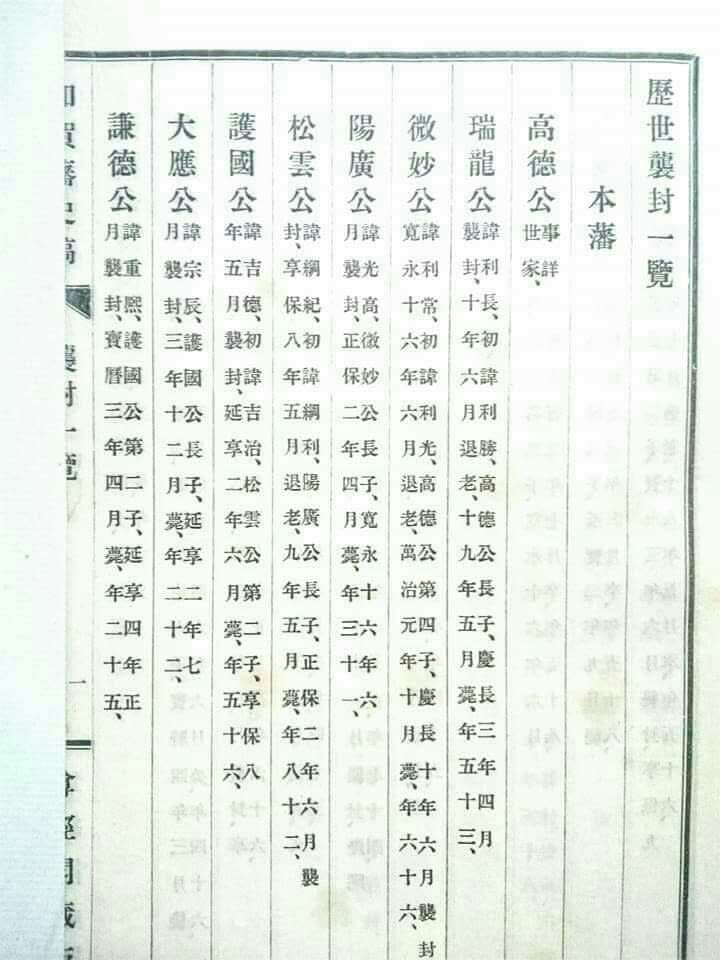 歷世襲封一覽
本藩
高德公 事詳
世家、
瑞龍公 諱利長、初諱利勝、高德公長子、慶長三年四月
襲封、十年六月退老、十九年五月薨、年五十三、
微妙公 諱利常、初諱利光、高德公第四子、慶長十年六月襲封
寬永十六年六月退老、萬治元年十月薨、年六十六、
陽廣公 諱光高、微妙公長子、寬永十六年六
月襲封、正保二年四月薨、年三十一、
松雲公 諱綱紀、初諱綱利、陽廣公長子、正保二年六月襲
封、享保八年五月退老、九年五月薨、年八十二、
護國公 諱吉德、初諱吉治、松雲公第二子、享保八
年五月襲封、延享二年六月薨、年五十六、
大應公 諱宗辰、護國公長子、延享二年七
月襲封、三年十二月薨、年二十二、
謙德公 諱重熙、護國公第二子、延享四年正
月襲封、寶曆三年四月薨、年二十五、
加賀藩史稿 襲封一覽 一